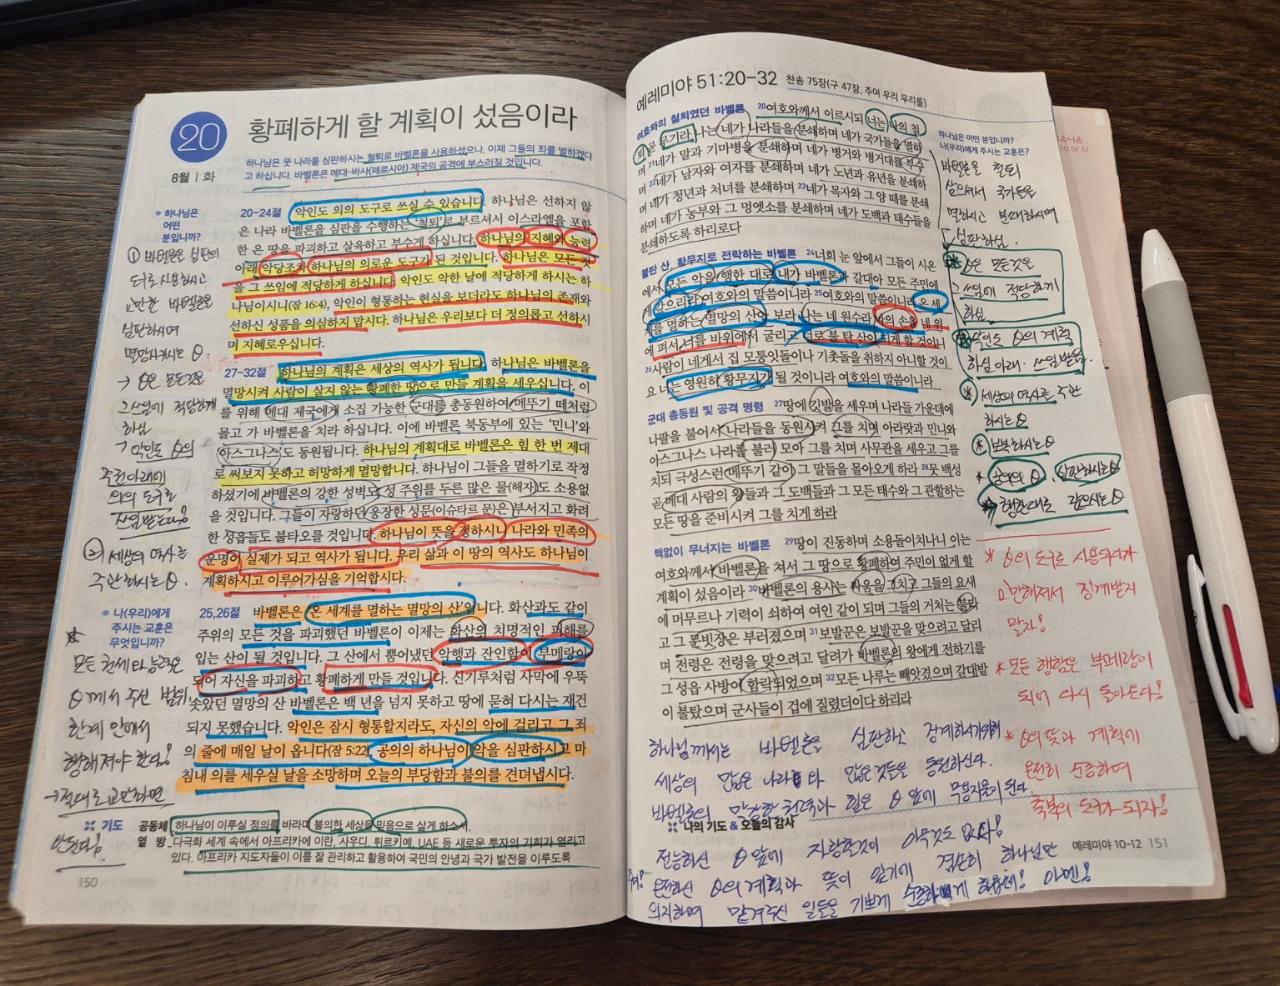 20
8월 | 화
황폐하게 할 계획이 섰음이라
하나님은 뭇 나라를 심판하시는 철퇴로 바벨론을 사용하셨으나, 이제 그들의 죄를 벌하겠다
고 하십니다. 바벨론은 메대-바사(페르시아) 제국의 공격에 부스러질 것입니다.
하나님은
어떤
분입니까?
① 바벨론은 심판의
도구로 사용하시고
교만한 바벨론을
심판하시며
멸망시키시는 θ
→ θ은 모든것을
그 쓰임에 적당하게
하심
→ 악인도 θ의
주권아래에
의의 도구로
쓰임받는다!
② 세상의 역사를
주관하시는 θ.
20-24절 악인도 의의 도구로 쓰실 수 있습니다. 하나님은 선하지 않
은 나라 바벨론을 심판을 수행하는 '철퇴'로 부르셔서 이스라엘을 포함
한 온 땅을 파괴하고 살육하고 부수게 하십니다. 하나님의 지혜와 능력
아래 악당조차 하나님의 의로운 도구가 된 것입니다. 하나님은 모든 것
을 그 쓰임에 적당하게 하십니다. 악인도 악한 날에 적당하게 하시는 하
나님이시니(잠 16:4), 악인이 형통하는 현실을 보더라도 하나님의 존재와
선하신 성품을 의심하지 맙시다. 하나님은 우리보다 더 정의롭고 선하시
며 지혜로우십니다.
27-32절 하나님의 계획은 세상의 역사가 됩니다. 하나님은 바벨론을
멸망시켜 사람이 살지 않는 황폐한 땅으로 만들 계획을 세우십니다. 이
를 위해 메대 제국에게 소집 가능한 군대를 총동원하여 메뚜기 떼처럼
몰고 가 바벨론을 치라 하십니다. 이에 바벨론 북동부에 있는 '민니'와
아스그나스도 동원됩니다. 하나님의 계획대로 바벨론은 힘 한 번 제대
로 써보지 못하고 허망하게 멸망합니다. 하나님이 그들을 멸하기로 작정
하셨기에 바벨론의 강한 성벽도, 성 주위를 두른 많은 물(해자)도 소용없
을 것입니다. 그들이 자랑하던 웅장한 성문(이슈타르 문)은 부서지고 화려
한 성읍들도 불타오를 것입니다. 하나님이 뜻을 정하시니 나라와 민족의
운명이 실제가 되고 역사가 됩니다. 우리 삶과 이 땅의 역사도 하나님이
계획하시고 이루어가심을 기억합시다.
나(우리)에게
주시는 교훈은
무엇입니까?
모든 권세와 능력은
θ께서 주신 범위,
한계 안에서
행해져야 한다!
→ 절대로 교만하면
안된다!
25,26절 바벨론은 '온 세계를 멸하는 멸망의 산'입니다. 화산과도 같이
주위의 모든 것을 파괴했던 바벨론이 이제는 화산의 치명적인 피해를
입는 산이 될 것입니다. 그 산에서 뿜어냈던 악행과 잔인함이 부메랑이
되어 자신을 파괴하고 황폐하게 만들 것입니다. 신기루처럼 사막에 우뚝
솟았던 멸망의 산 바벨론은 백 년을 넘지 못하고 땅에 묻혀 다시는 재건
되지 못했습니다. 악인은 잠시 형통할지라도, 자신의 악에 걸리고 그 죄
의 줄에 매일 날이 옵니다(잠 5:22). 공의의 하나님이 악을 심판하시고 마
침내 의를 세우실 날을 소망하며 오늘의 부당함과 불의를 견뎌냅시다.
기도
공동체 하나님이 이루실 정의를 바라며 불의한 세상을 믿음으로 살게 하소서.
열 방 다극화 세계 속에서 아프리카에 이란, 사우디, 튀르키예, UAE 등 새로운 투자의 기회가 열리고
있다. 아프리카 지도자들이 이를 잘 관리하고 활용하여 국민의 안녕과 국가 발전을 이루도록
150
예레미야 51:20-32 찬송 75장(구 47장, 주여 우리 무리를)
여호와의 철퇴였던 바벨론 20여호와께서 이르시되 너는 나의 철
퇴 곧 무기라 나는 네가 나라들을 분쇄하며 네가 국가들을 멸하
며 21네가 말과 기마병을 분쇄하며 네가 병거와 병거대를 부수
며 22네가 남자와 여자를 분쇄하며 네가 노년과 유년을 분쇄하
며 네가 청년과 처녀를 분쇄하며 23네가 목자와 그 양 떼를 분쇄
하며 네가 농부와 그 멍엣소를 분쇄하며 네가 도백과 태수들을
분쇄하도록 하리로다
불탄 산, 황무지로 전락하는 바벨론 24너희 눈 앞에서 그들이 시온
에서 모든 악을 행한 대로 내가 바벨론과 갈대아 모든 주민에
게 갚으리라 여호와의 말씀이니라 25여호와의 말씀이니라 온 세
계를 멸하는 멸망의 산아 보라 나는 네 원수라 나의 손을 네 위
에 펴서 너를 바위에서 굴리고 너로 불 탄 산이 되게 할 것이니
26사람이 네게서 집 모퉁잇돌이나 기촛돌을 취하지 아니할 것이
요 너는 영원히 황무지가 될 것이니라 여호와의 말씀이니라
군대 총동원 및 공격 명령 27땅에 깃발을 세우며 나라들 가운데에
나팔을 불어서 나라들을 동원시켜 그를 치며 아라랏과 민니와
아스그나스 나라를 불러 모아 그를 치며 사무관을 세우고 그를
치되 극성스런 메뚜기 같이 그 말들을 몰아오게 하라 28뭇 백성
곧 메대 사람의 왕들과 그 도백들과 그 모든 태수와 그 관할하는
모든 땅을 준비시켜 그를 치게 하라
맥없이 무너지는 바벨론 29땅이 진동하며 소용돌이치나니 이는
여호와께서 바벨론을 쳐서 그 땅으로 황폐하여 주민이 없게 할
계획이 섰음이라 30바벨론의 용사는 싸움을 그치고 그들의 요새
에 머무르나 기력이 쇠하여 여인 같이 되며 그들의 거처는 불타
고 그 문빗장은 부러졌으며 31보발꾼은 보발꾼을 맞으려고 달리
며 전령은 전령을 맞으려고 달려가 바벨론의 왕에게 전하기를
그 성읍 사방이 함락되었으며 32모든 나루는 빼앗겼으며 갈대밭
이 불탔으며 군사들이 겁에 질렸더이다 하리라
하나님은 어떤 분입니까?
나(우리)에게 주시는 교훈은?
바벨론을 철퇴
삼으셔서 국가들을
멸하시고 분쇄하시며
심판하심.
θ은 모든것을
그 쓰임에 적당하게
하심
악인도 θ의 계획
하심 아래. 쓰임받음.
세상의 역사를 주관
하시는 θ
보복하시는 θ
공의의 θ. 심판하시는 θ
행한대로 갚으시는 θ
* θ의 도구로 사용되다가
교만해져서 징계받지
말자!
* 모든 행함은 부메랑이
되어 다시 돌아온다!
* θ의 뜻과 계획에
온전히 순종하며
축복의 도구가 되자!
하나님께서는 바벨론을 심판하고 징계하시기위해
세상의 많은 나라와 많은것들을 동원하신다.
바벨론의 막강한 권력과 힘은 θ앞에 무용지물이 된다.
나의 기도 & 오늘의 감사
전능하신 θ앞에 자랑할것이 아무것도 없다!
주여! 온전하신 θ의 계획과 뜻이 있기에 겸손히 하나님만
의지하며 맡겨주신 일들을 기쁘게 순종하게 하옵소서! 아멘!
예레미야 10-12 151